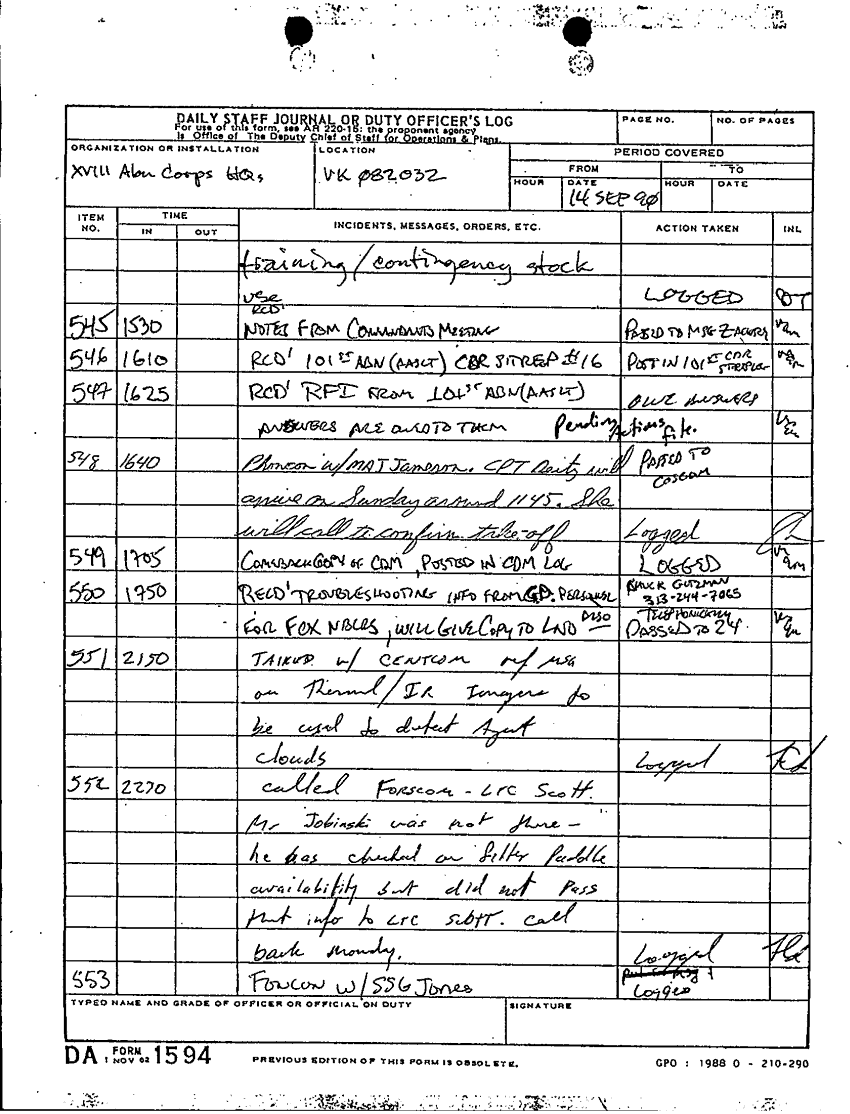 DAILY STAFF JOURNAL OR DUTY OFFICER'S LOG
For use of this form, see AR 220-15; the proponent agency
is Office of The Deputy Chief of Staff for Operations & Plans.
PAGE NO.
NO. OF PAGES
ORGANIZATION OR INSTALLATION
XVIII Abn Corps HQs
LOCATION
VK 082032
PERIOD COVERED
FROM
TO
HOUR
DATE
14 SEP 90
HOUR
DATE
ITEM NO.
TIME
IN
OUT
INCIDENTS, MESSAGES, ORDERS, ETC.
ACTION TAKEN
INL
training/contingency stock
use
LOGGED
545 1530 RCD'
NOTES FROM COMMANDANTS MEETING
PASSED TO MSG
546 1610 RCD' 101ST ABN (AASLT) CDR SITREP #16 POST IN 101ST CDR
547 1625 RCD' RFI FROM 101ST ABN (AASLT)
OWE ANSWERS
ANSWERS ARE OWED TO THEM Pending Actions file.
548 1640 Phoncon w/MAJ Jameson. CPT will PASSED TO
COSCOM
arrive on Sunday around 1145. She
will call to confirm take-off Logged
549 1705 COMEBACK COPY OF CDM, POSTED IN CDM LOG LOGGED
550 1750 RECD' TROUBLESHOOTING INFO FROM GD. PERSONNEL
GUZMAN
313-244-7065
FOR FOX NBCRS, WILL GIVE COPY TO LNO
TELEPHONICALLY
PASSED TO 24
551 2150 TALKED w/ CENTCOM ref msg
on Thermal/IR Imagers to
be used to detect agent
clouds Logged
552 2220 called FORSCOM - LTC Scott.
Mr Jobinski was not there -
he has checked on filter paddle
availability but did not pass
that info to LTC Scott. call
back Monday. Logged
553 FONCON W/SSG Jones
Logged
TYPED NAME AND GRADE OF OFFICER OR OFFICIAL ON DUTY
SIGNATURE
DA FORM 1 NOV 62 1594
PREVIOUS EDITION OF THIS FORM IS OBSOLETE.
GPO : 1988 O - 210-290